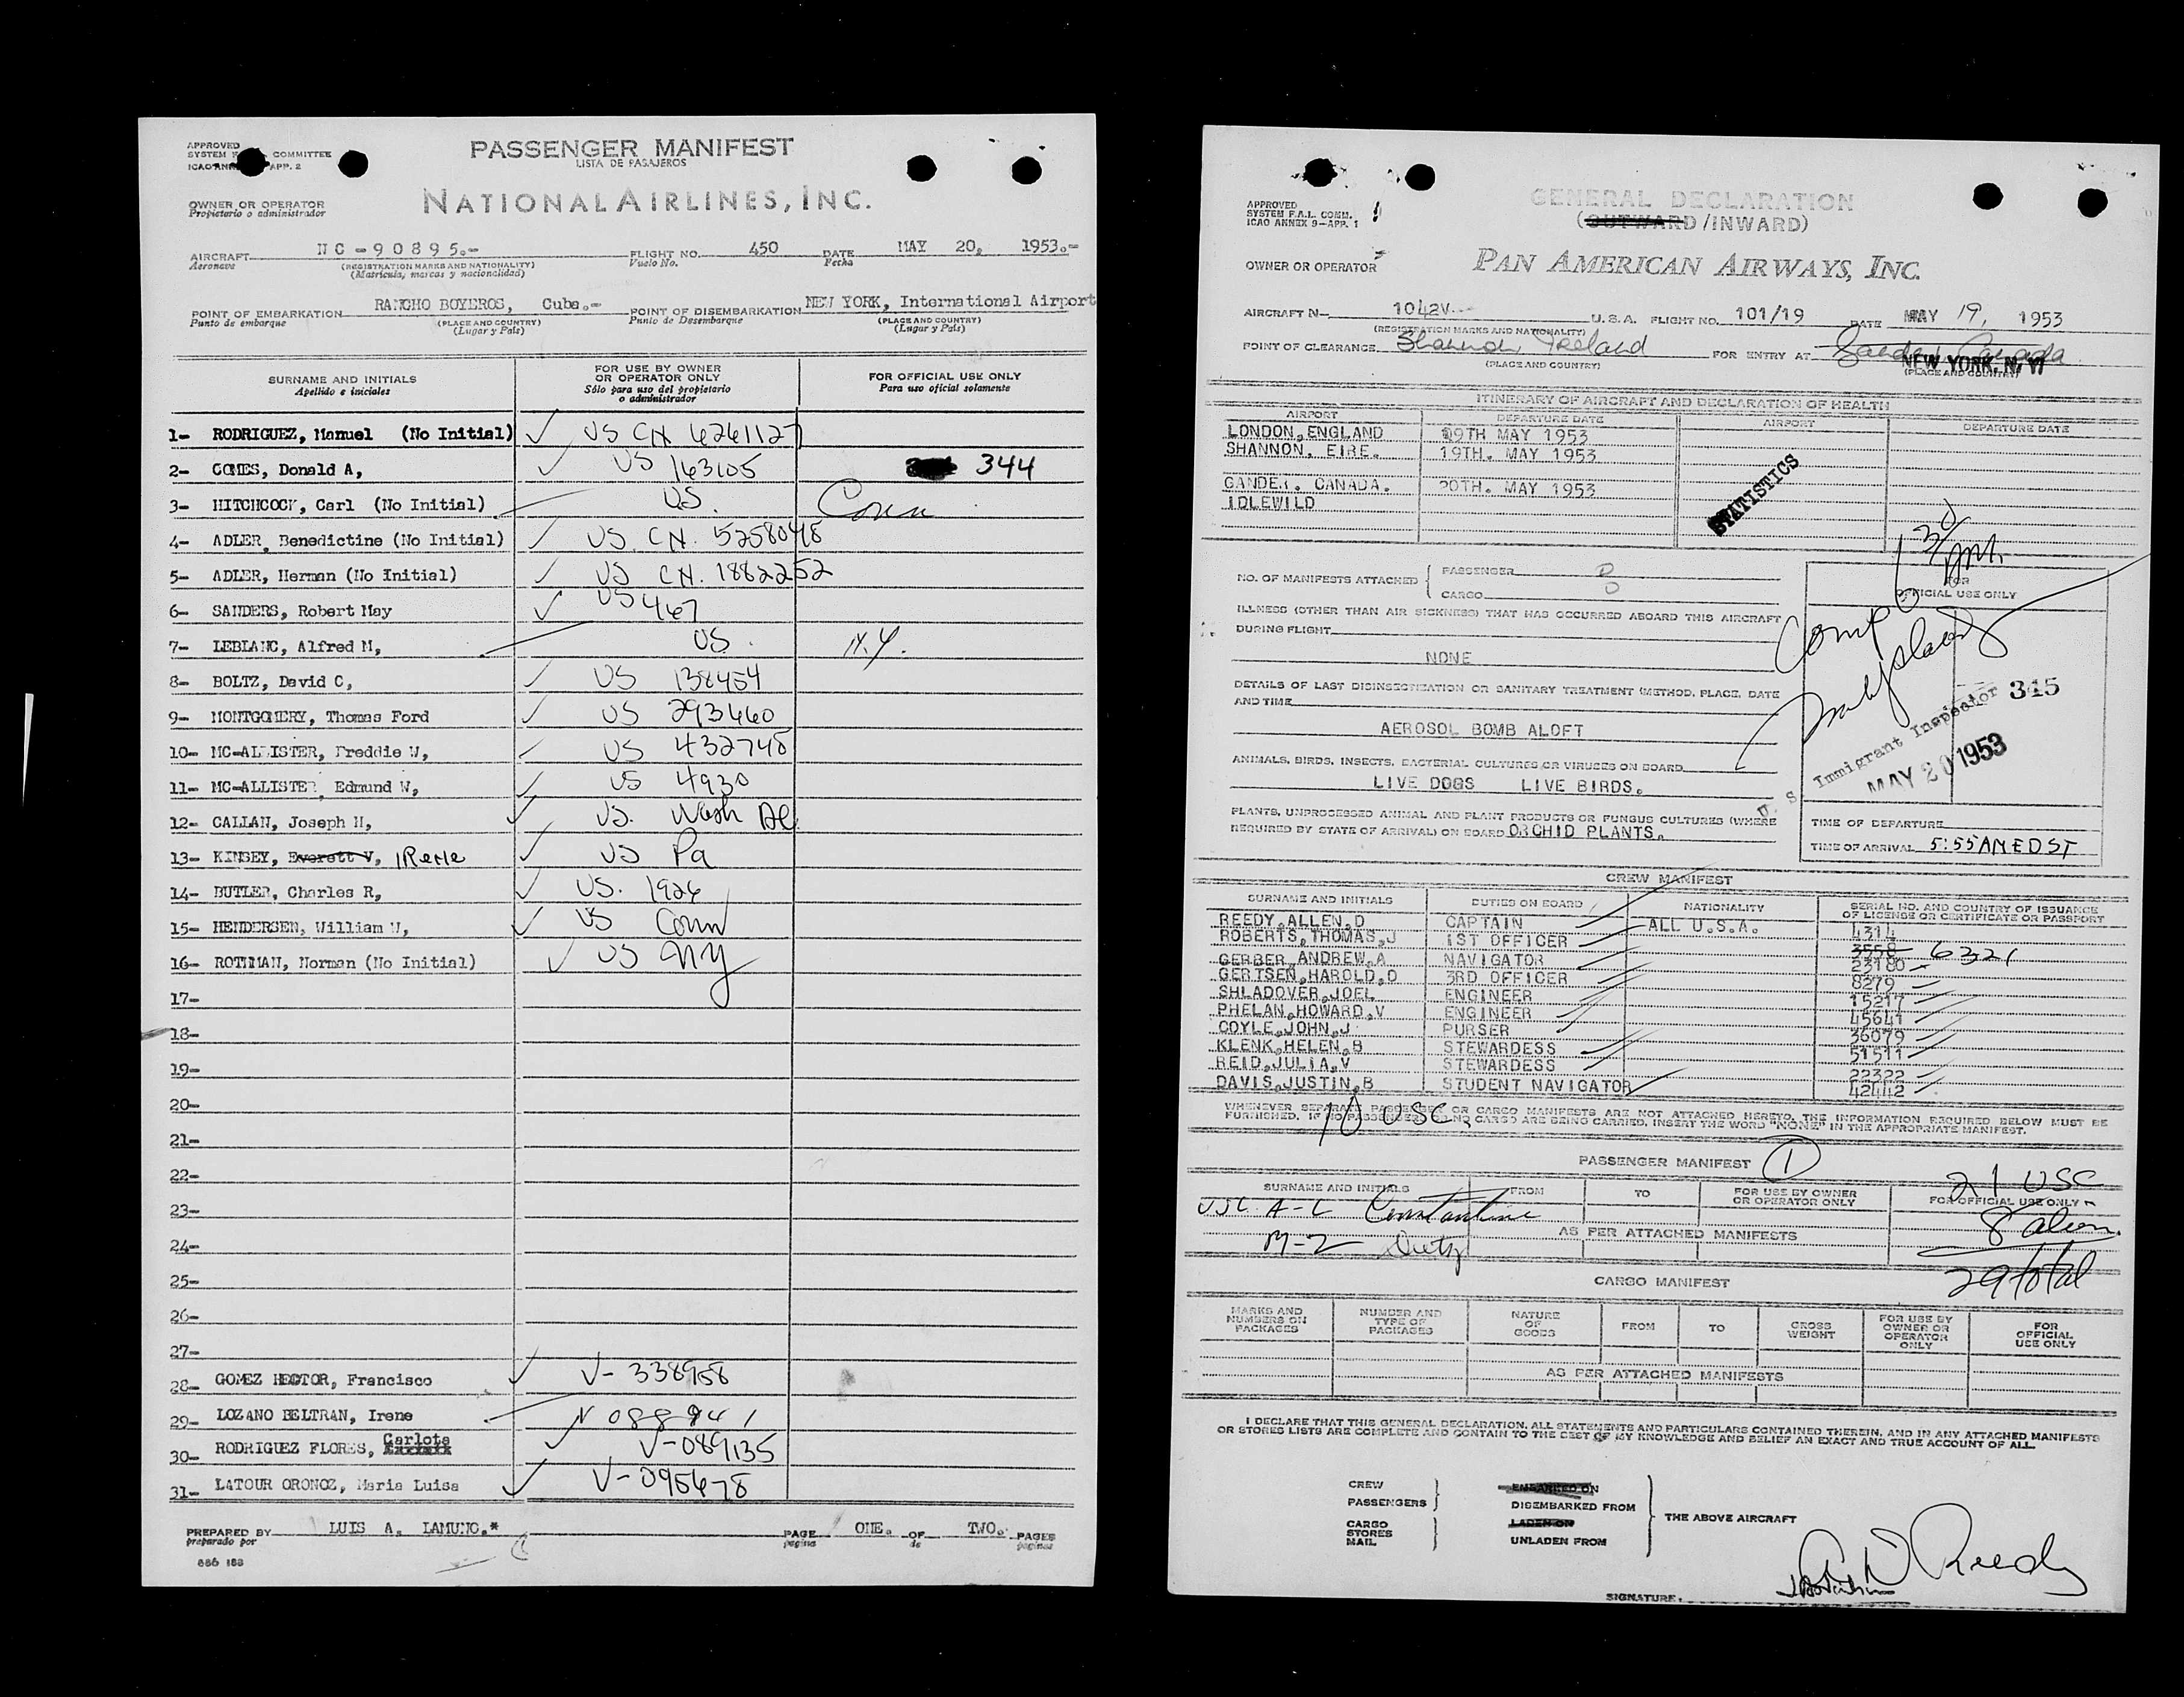 APPROVED
SYSTEM COMMITTEE
ICAO ANNEX APP. 2
PASSENGER MANIFEST
LISTA DE PASAJEROS
NATIONAL AIRLINES, INC.
OWNER OR OPERATOR
Propietario o administrador
AIRCRAFT NC-90895.- FLIGHT NO. 450 DATE MAY 20, 1953.-
Aeronave (REGISTRATION MARKS AND NATIONALITY) Vuelo No. Fecha
(Matricula, marcas y nacionalidad)
POINT OF EMBARKATION RANCHO BOYEROS, Cuba.- POINT OF DISEMBARKATION NEW YORK, International Airport
Punto de embarque (PLACE AND COUNTRY) Punto de Desembarque (PLACE AND COUNTRY)
(Lugar y País) (Lugar y País)
SURNAME AND INITIALS
Apellido e iniciales
FOR USE BY OWNER
OR OPERATOR ONLY
Sólo para uso del propietario
o administrador
FOR OFFICIAL USE ONLY
Para uso oficial solamente
1- RODRIGUEZ, Manuel (No Initial) ✓ US CN 6261127
2- GOMES, Donald A, ✓ US 163105 344
3- HITCHCOCK, Carl (No Initial) US. Conn
4- ADLER, Benedictine (No Initial) ✓ US. CN. 5258048
5- ADLER, Herman (No Initial) ✓ US CN. 1882252
6- SANDERS, Robert May ✓ US 467
7- LEBLANC, Alfred M, US. N.Y.
8- BOLTZ, David C, ✓ US 138454
9- MONTGOMERY, Thomas Ford ✓ US 293460
10- MC-ALLISTER, Freddie W, ✓ US 432748
11- MC-ALLISTER, Edmund W, ✓ US 4930
12- CALLAN, Joseph H, ✓ US. Wash DC
13- KINSEY, Everett V, ✓ US Pa
14- BUTLER, Charles R, ✓ US. 1926
15- HENDERSEN, William W, ✓ US Conn
16- ROTHMAN, Norman (No Initial) ✓ US NY
17-
18-
19-
20-
21-
22-
23-
24-
25-
26-
27-
28- GOMEZ HECTOR, Francisco ✓ V-338958
29- LOZANO BELTRAN, Irene V 088941
30- RODRIGUEZ FLORES, Carlota ✓ V-089135
31- LATOUR ORONOZ, Maria Luisa ✓ V-095678
PREPARED BY LUIS A. LAMUNO.* PAGE ONE. OF TWO. PAGES
preparado por pagina de paginas
886 188
APPROVED
SYSTEM F.A.L. COMM.
ICAO ANNEX 9-APP. 1
GENERAL DECLARATION
(OUTWARD/INWARD)
OWNER OR OPERATOR PAN AMERICAN AIRWAYS, INC.
AIRCRAFT N- 1042V U.S.A. FLIGHT NO. 101/19 DATE MAY 19, 1953
(REGISTRATION MARKS AND NATIONALITY)
POINT OF CLEARANCE Shannon Ireland FOR ENTRY AT Gander Canada
NEW YORK, N.Y.
(PLACE AND COUNTRY) (PLACE AND COUNTRY)
ITINERARY OF AIRCRAFT AND DECLARATION OF HEALTH
AIRPORT DEPARTURE DATE AIRPORT DEPARTURE DATE
LONDON, ENGLAND 19TH MAY 1953
SHANNON, EIRE. 19TH. MAY 1953
GANDER, CANADA. 20TH. MAY 1953
IDLEWILD
STATISTICS
NO. OF MANIFESTS ATTACHED { PASSENGER
CARGO
FOR
OFFICIAL USE ONLY
ILLNESS (OTHER THAN AIR SICKNESS) THAT HAS OCCURRED ABOARD THIS AIRCRAFT
DURING FLIGHT
NONE
DETAILS OF LAST DISINSECTIZATION OR SANITARY TREATMENT (METHOD, PLACE, DATE
AND TIME
AEROSOL BOMB ALOFT
U. S. Immigrant Inspector 345
MAY 20 1953
ANIMALS, BIRDS, INSECTS, BACTERIAL CULTURES OR VIRUSES ON BOARD
LIVE DOGS LIVE BIRDS.
PLANTS, UNPROCESSED ANIMAL AND PLANT PRODUCTS OR FUNGUS CULTURES (WHERE
REQUIRED BY STATE OF ARRIVAL) ON BOARD ORCHID PLANTS.
TIME OF DEPARTURE
TIME OF ARRIVAL 5:55AM EDST
CREW MANIFEST
SURNAME AND INITIALS DUTIES ON BOARD NATIONALITY SERIAL NO. AND COUNTRY OF ISSUANCE
OF LICENSE OR CERTIFICATE OR PASSPORT
REEDY, ALLEN, D CAPTAIN ALL U.S.A. 4314
ROBERTS, THOMAS, J 1ST OFFICER 3558 6321
GERBER, ANDREW, A NAVIGATOR 23180
GERTSEN, HAROLD, O 3RD OFFICER 8279
SHLADOVER, JOEL ENGINEER 15217
PHELAN, HOWARD, V ENGINEER 45641
COYLE, JOHN, J PURSER 36079
KLENK, HELEN, B STEWARDESS 51511
REID, JULIA, V STEWARDESS 22322
DAVIS, JUSTIN, B STUDENT NAVIGATOR 42442
WHENEVER SEPARATE PASSENGER OR CARGO MANIFESTS ARE NOT ATTACHED HERETO, THE INFORMATION REQUIRED BELOW MUST BE
FURNISHED. IF NO PASSENGERS OR NO CARGO ARE BEING CARRIED, INSERT THE WORD "NONE" IN THE APPROPRIATE MANIFEST.
10 USC
PASSENGER MANIFEST 1
21 USC
SURNAME AND INITIALS FROM TO FOR USE BY OWNER
OR OPERATOR ONLY FOR OFFICIAL USE ONLY
USC A-L Constantine 8 alien
M-Z AS PER ATTACHED MANIFESTS
29 total
CARGO MANIFEST
MARKS AND
NUMBERS ON
PACKAGES
NUMBER AND
TYPE OF
PACKAGES
NATURE
OF
GOODS
FROM
TO
GROSS
WEIGHT
FOR USE BY
OWNER OR
OPERATOR
ONLY
FOR
OFFICIAL
USE ONLY
AS PER ATTACHED MANIFESTS
I DECLARE THAT THIS GENERAL DECLARATION, ALL STATEMENTS AND PARTICULARS CONTAINED THEREIN, AND IN ANY ATTACHED MANIFESTS
OR STORES LISTS ARE COMPLETE AND CONTAIN TO THE BEST OF MY KNOWLEDGE AND BELIEF AN EXACT AND TRUE ACCOUNT OF ALL
CREW
PASSENGERS
CARGO
STORES
MAIL
EMBARKED ON
DISEMBARKED FROM
LADEN ON
UNLADEN FROM
THE ABOVE AIRCRAFT
SIGNATURE. A D Reedy